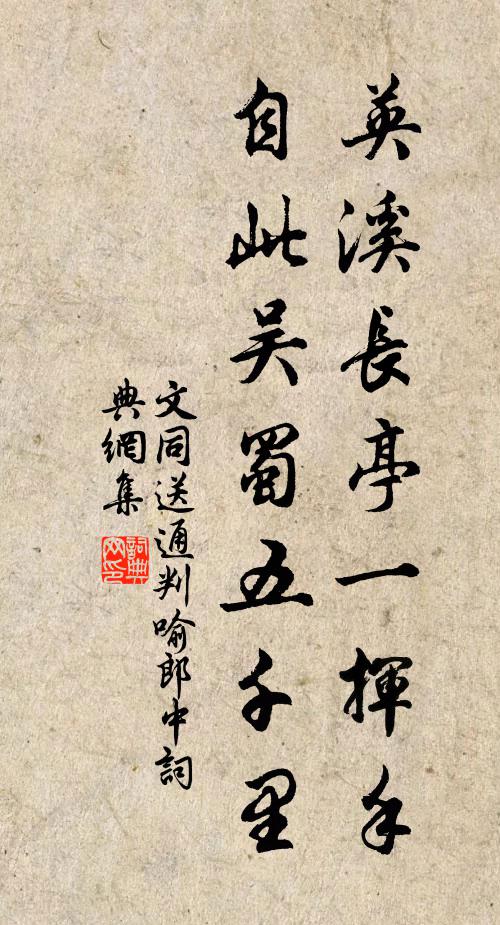 英溪長亭一揮手
自此吴蜀五千里
文同送通判喻郎中詞
典網集
詞典
网印